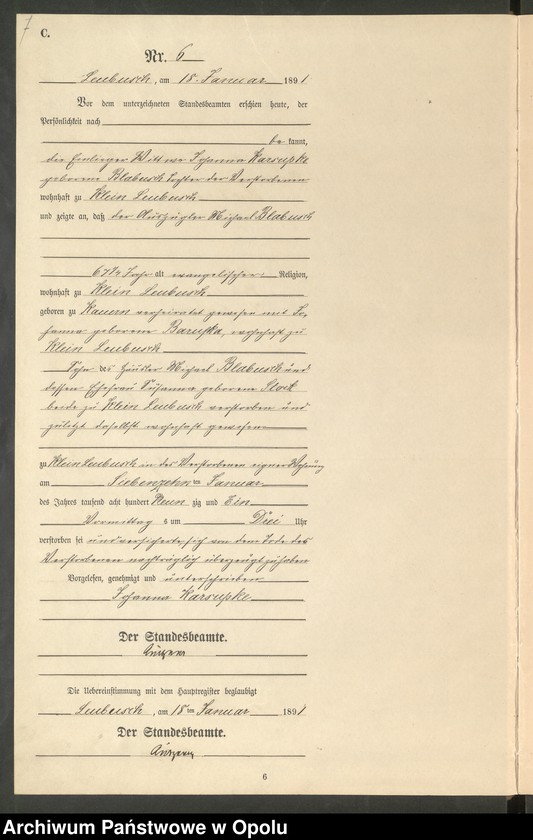 7
C.
Nr. 6
Leubusch, am 18. Januar 1891
Vor dem unterzeichneten Standesbeamten erschien heute, der
Persönlichkeit nach
be kannt,
die Einlieger Wittwe Johanna Karsupke
geborene Blabusch Tochter der Verstorbenen
wohnhaft zu Klein Leubusch
und zeigte an, daß der Auszügler Michael Blabusch
67¾ Jahr alt evangelischer Religion,
wohnhaft zu Klein Leubusch
geboren zu Kauern verheiratet gewesen mit Jo-
hanna geborene Baruska, wohnhaft zu
Klein Leubusch
Sohn des Häusler Michael Blabusch und
dessen Ehefrau Susanna geborene Stock
beide zu Klein Leubusch verstorben und
zuletzt daselbst wohnhaft gewesen
zu Klein Leubusch in des Verstorbenen eigner Wohnung
am Siebenzehn ten Januar
des Jahres tausend acht hundert Neun zig und Ein
Vormittag s um Drei Uhr
verstorben sei und versicherte, sich von dem Tode des
Verstorbenen nachträglich überzeugt zu haben
Vorgelesen, genehmigt und unterschrieben
Johanna Karsupke
Der Standesbeamte.
Die Uebereinstimmung mit dem Hauptregister beglaubigt
Leubusch, am 18ten Januar 1891
Der Standesbeamte.
6
Archiwum Państwowe w Opolu